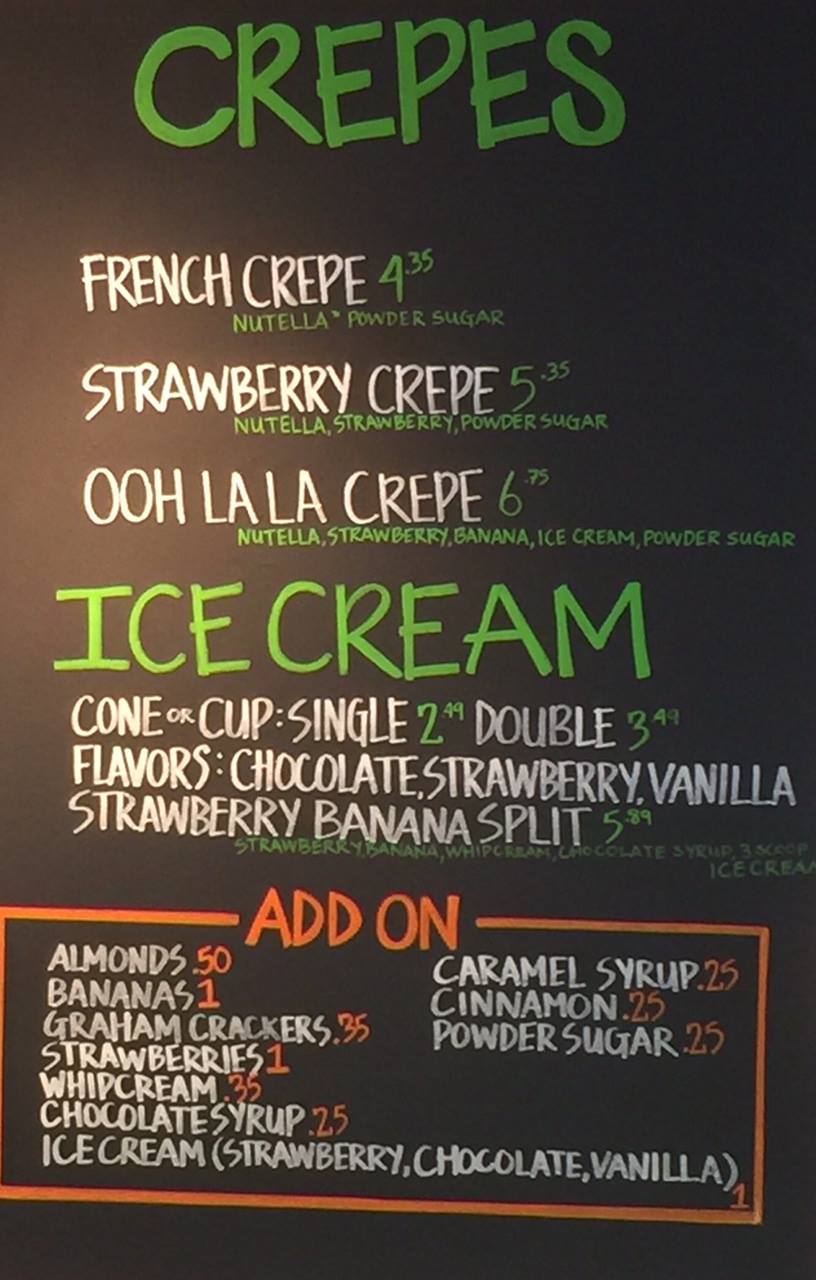 CREPES
FRENCH CREPE 4.35
NUTELLA* POWDER SUGAR
STRAWBERRY CREPE 5.35
NUTELLA, STRAWBERRY, POWDER SUGAR
OOH LA LA CREPE 6.75
NUTELLA, STRAWBERRY, BANANA, ICE CREAM, POWDER SUGAR
ICE CREAM
CONE OR CUP: SINGLE 2.49 DOUBLE 3.49
FLAVORS: CHOCOLATE, STRAWBERRY, VANILLA
STRAWBERRY BANANA SPLIT 5.89
STRAWBERRY, BANANA, WHIPCREAM, CHOCOLATE SYRUP, 3 SCOOP
ICE CREAM
ADD ON
ALMONDS .50
BANANAS 1
GRAHAM CRACKERS .35
STRAWBERRIES 1
WHIPCREAM .35
CHOCOLATE SYRUP .25
ICE CREAM (STRAWBERRY, CHOCOLATE, VANILLA) 1
CARAMEL SYRUP .25
CINNAMON .25
POWDER SUGAR .25